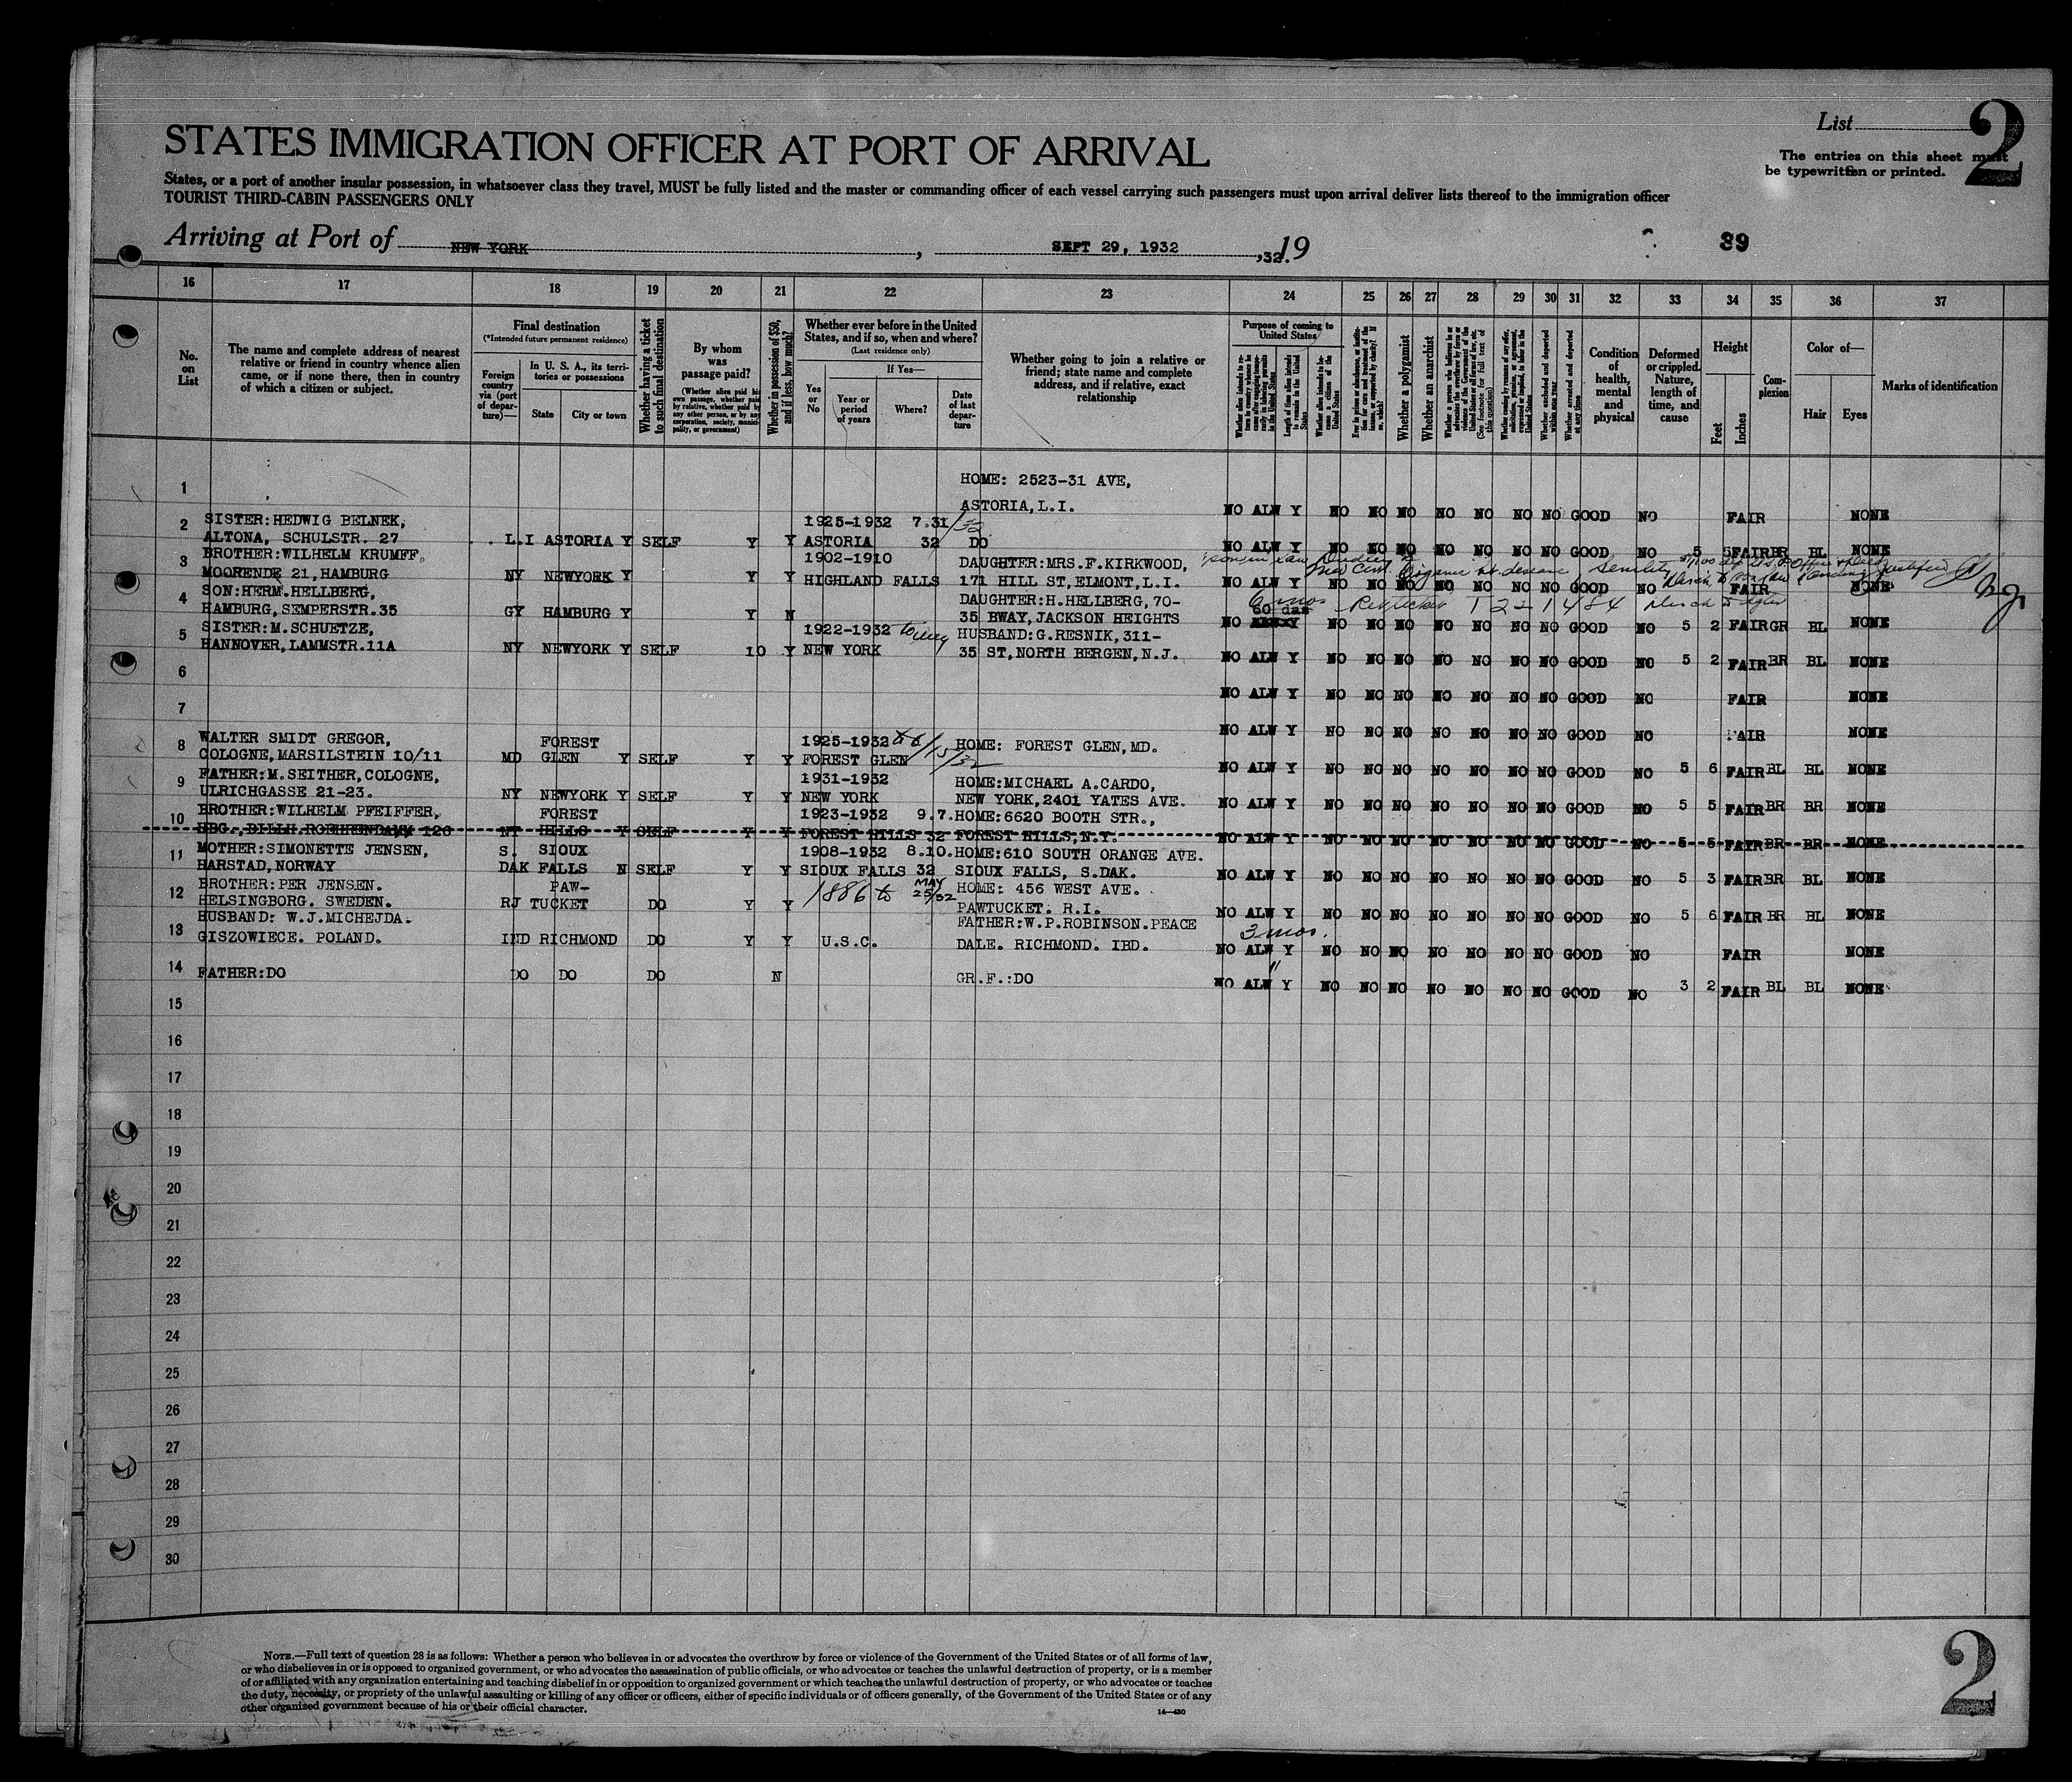 List
2
STATES IMMIGRATION OFFICER AT PORT OF ARRIVAL
The entries on this sheet must
be typewritten or printed.
States, or a port of another insular possession, in whatsoever class they travel, MUST be fully listed and the master or commanding officer of each vessel carrying such passengers must upon arrival deliver lists thereof to the immigration officer
TOURIST THIRD-CABIN PASSENGERS ONLY
Arriving at Port of NEW YORK, SEPT 29, 1932, 32. 19
89
16 17 18 19 20 21 22 23 24 25 26 27 28 29 30 31 32 33 34 35 36 37
No. on List
The name and complete address of nearest relative or friend in country whence alien came, or if none there, then in country of which a citizen or subject.
Final destination
(*Intended future permanent residence)
Foreign country via (port of departure)—
In U. S. A., its territories or possessions
State
City or town
Whether having a ticket to such final destination
By whom was passage paid?
(Whether alien paid his own passage, whether paid by relative, whether paid by any other person, or by any corporation, society, municipality, or government)
Whether in possession of $50, and if less, how much?
Whether ever before in the United States, and if so, when and where?
(Last residence only)
Yes or No
If Yes—
Year or period of years
Where?
Date of last departure
Whether going to join a relative or friend; state name and complete address, and if relative, exact relationship
Purpose of coming to United States
Length of time alien intends to remain in the United States
Whether alien intends to become a citizen of the United States
Whether a polygamist
Whether an anarchist
(See footnote for full text of this question)
Whether excluded and deported within one year
Whether arrested and deported at any time
Condition of health, mental and physical
Deformed or crippled. Nature, length of time, and cause
Height
Feet
Inches
Complexion
Color of—
Hair
Eyes
Marks of identification
1 HOME: 2523-31 AVE,
ASTORIA,L.I. NO ALW Y NO NO NO NO NO NO NO GOOD NO FAIR NONE
2 SISTER:HEDWIG BELNEK, 1925-1932 7.31/32
ALTONA, SCHULSTR. 27 L.I ASTORIA Y SELF Y Y ASTORIA 32 DO NO ALW Y NO NO NO NO NO NO NO GOOD NO 5 5 FAIR BR BL NONE
3 BROTHER:WILHELM KRUMFF, 1902-1910 DAUGHTER:MRS.F.KIRKWOOD,
MOORENDE 21,HAMBURG NY NEWYORK Y Y Y HIGHLAND FALLS 171 HILL ST,ELMONT,L.I. NO ALW Y NO NO NO NO NO NO NO GOOD NO FAIR NONE
4 SON:HERM.HELLBERG, DAUGHTER:H.HELLBERG,70- 6 mos
HAMBURG,SEMPERSTR.35 GY HAMBURG Y Y N 35 BWAY,JACKSON HEIGHTS 60 das NO Y NO NO NO NO NO NO NO GOOD NO 5 2 FAIR GR BL NONE
5 SISTER:M.SCHUETZE, 1922-1932 HUSBAND:G.RESNIK,311-
HANNOVER,LAMMSTR.11A NY NEWYORK Y SELF 10 Y NEW YORK 35 ST,NORTH BERGEN,N.J. NO ALW Y NO NO NO NO NO NO NO GOOD NO 5 2 FAIR BR BL NONE
6 NO ALW Y NO NO NO NO NO NO NO GOOD NO FAIR NONE
7 NO ALW Y NO NO NO NO NO NO NO GOOD NO FAIR NONE
8 WALTER SMIDT GREGOR, FOREST 1925-1932 to 6/15/32 HOME: FOREST GLEN,MD.
COLOGNE,MARSILSTEIN 10/11 MD GLEN Y SELF Y Y FOREST GLEN NO ALW Y NO NO NO NO NO NO NO GOOD NO 5 6 FAIR BL BL NONE
9 FATHER:M.SEITHER,COLOGNE, 1931-1932 HOME:MICHAEL A.CARDO,
ULRICHGASSE 21-23. NY NEWYORK Y SELF Y Y NEW YORK NEW YORK,2401 YATES AVE. NO ALW Y NO NO NO NO NO NO NO GOOD NO 5 5 FAIR BR BR NONE
10 BROTHER:WILHELM PFEIFFER, FOREST 1923-1932 9.7. HOME:6620 BOOTH STR.,
HBG.,BILLH.ROEHRENDAMM 126 NY HILLS Y SELF Y Y FOREST HILLS 32 FOREST HILLS,N.Y. NO ALW Y NO NO NO NO NO NO NO GOOD NO 5 5 FAIR BR BR NONE
11 MOTHER:SIMONETTE JENSEN, S. SIOUX 1908-1932 8.10. HOME:610 SOUTH ORANGE AVE.
HARSTAD,NORWAY DAK FALLS N SELF Y Y SIOUX FALLS 32 SIOUX FALLS, S.DAK. NO ALW Y NO NO NO NO NO NO NO GOOD NO 5 3 FAIR BR BL NONE
12 BROTHER: PER JENSEN. PAW- 1886 to MAY 25/32 HOME: 456 WEST AVE.
HELSINGBORG. SWEDEN. RJ TUCKET DO Y Y PAWTUCKET. R.I. NO ALW Y NO NO NO NO NO NO NO GOOD NO 5 6 FAIR BR BL NONE
13 HUSBAND: W.J.MICHEJDA. FATHER:W.P.ROBINSON.PEACE 3 mos.
GISZOWIECE. POLAND. IND RICHMOND DO Y Y U.S.C. DALE. RICHMOND. IBD. NO ALW Y NO NO NO NO NO NO NO GOOD NO FAIR NONE
14 FATHER:DO DO DO DO N GR.F.:DO " NO ALW Y NO NO NO NO NO NO NO GOOD NO 3 2 FAIR BL BL NONE
15
16
17
18
19
20
21
22
23
24
25
26
27
28
29
30
NOTE.—Full text of question 28 is as follows: Whether a person who believes in or advocates the overthrow by force or violence of the Government of the United States or of all forms of law,
or who disbelieves in or is opposed to organized government, or who advocates the assassination of public officials, or who advocates or teaches the unlawful destruction of property, or is a member
of or affiliated with any organization entertaining and teaching disbelief in or opposition to organized government or which teaches the unlawful destruction of property, or who advocates or teaches
the duty, necessity, or propriety of the unlawful assaulting or killing of any officer or officers, either of specific individuals or of officers generally, of the Government of the United States or of any
other organized government because of his or their official character.
14—430
2